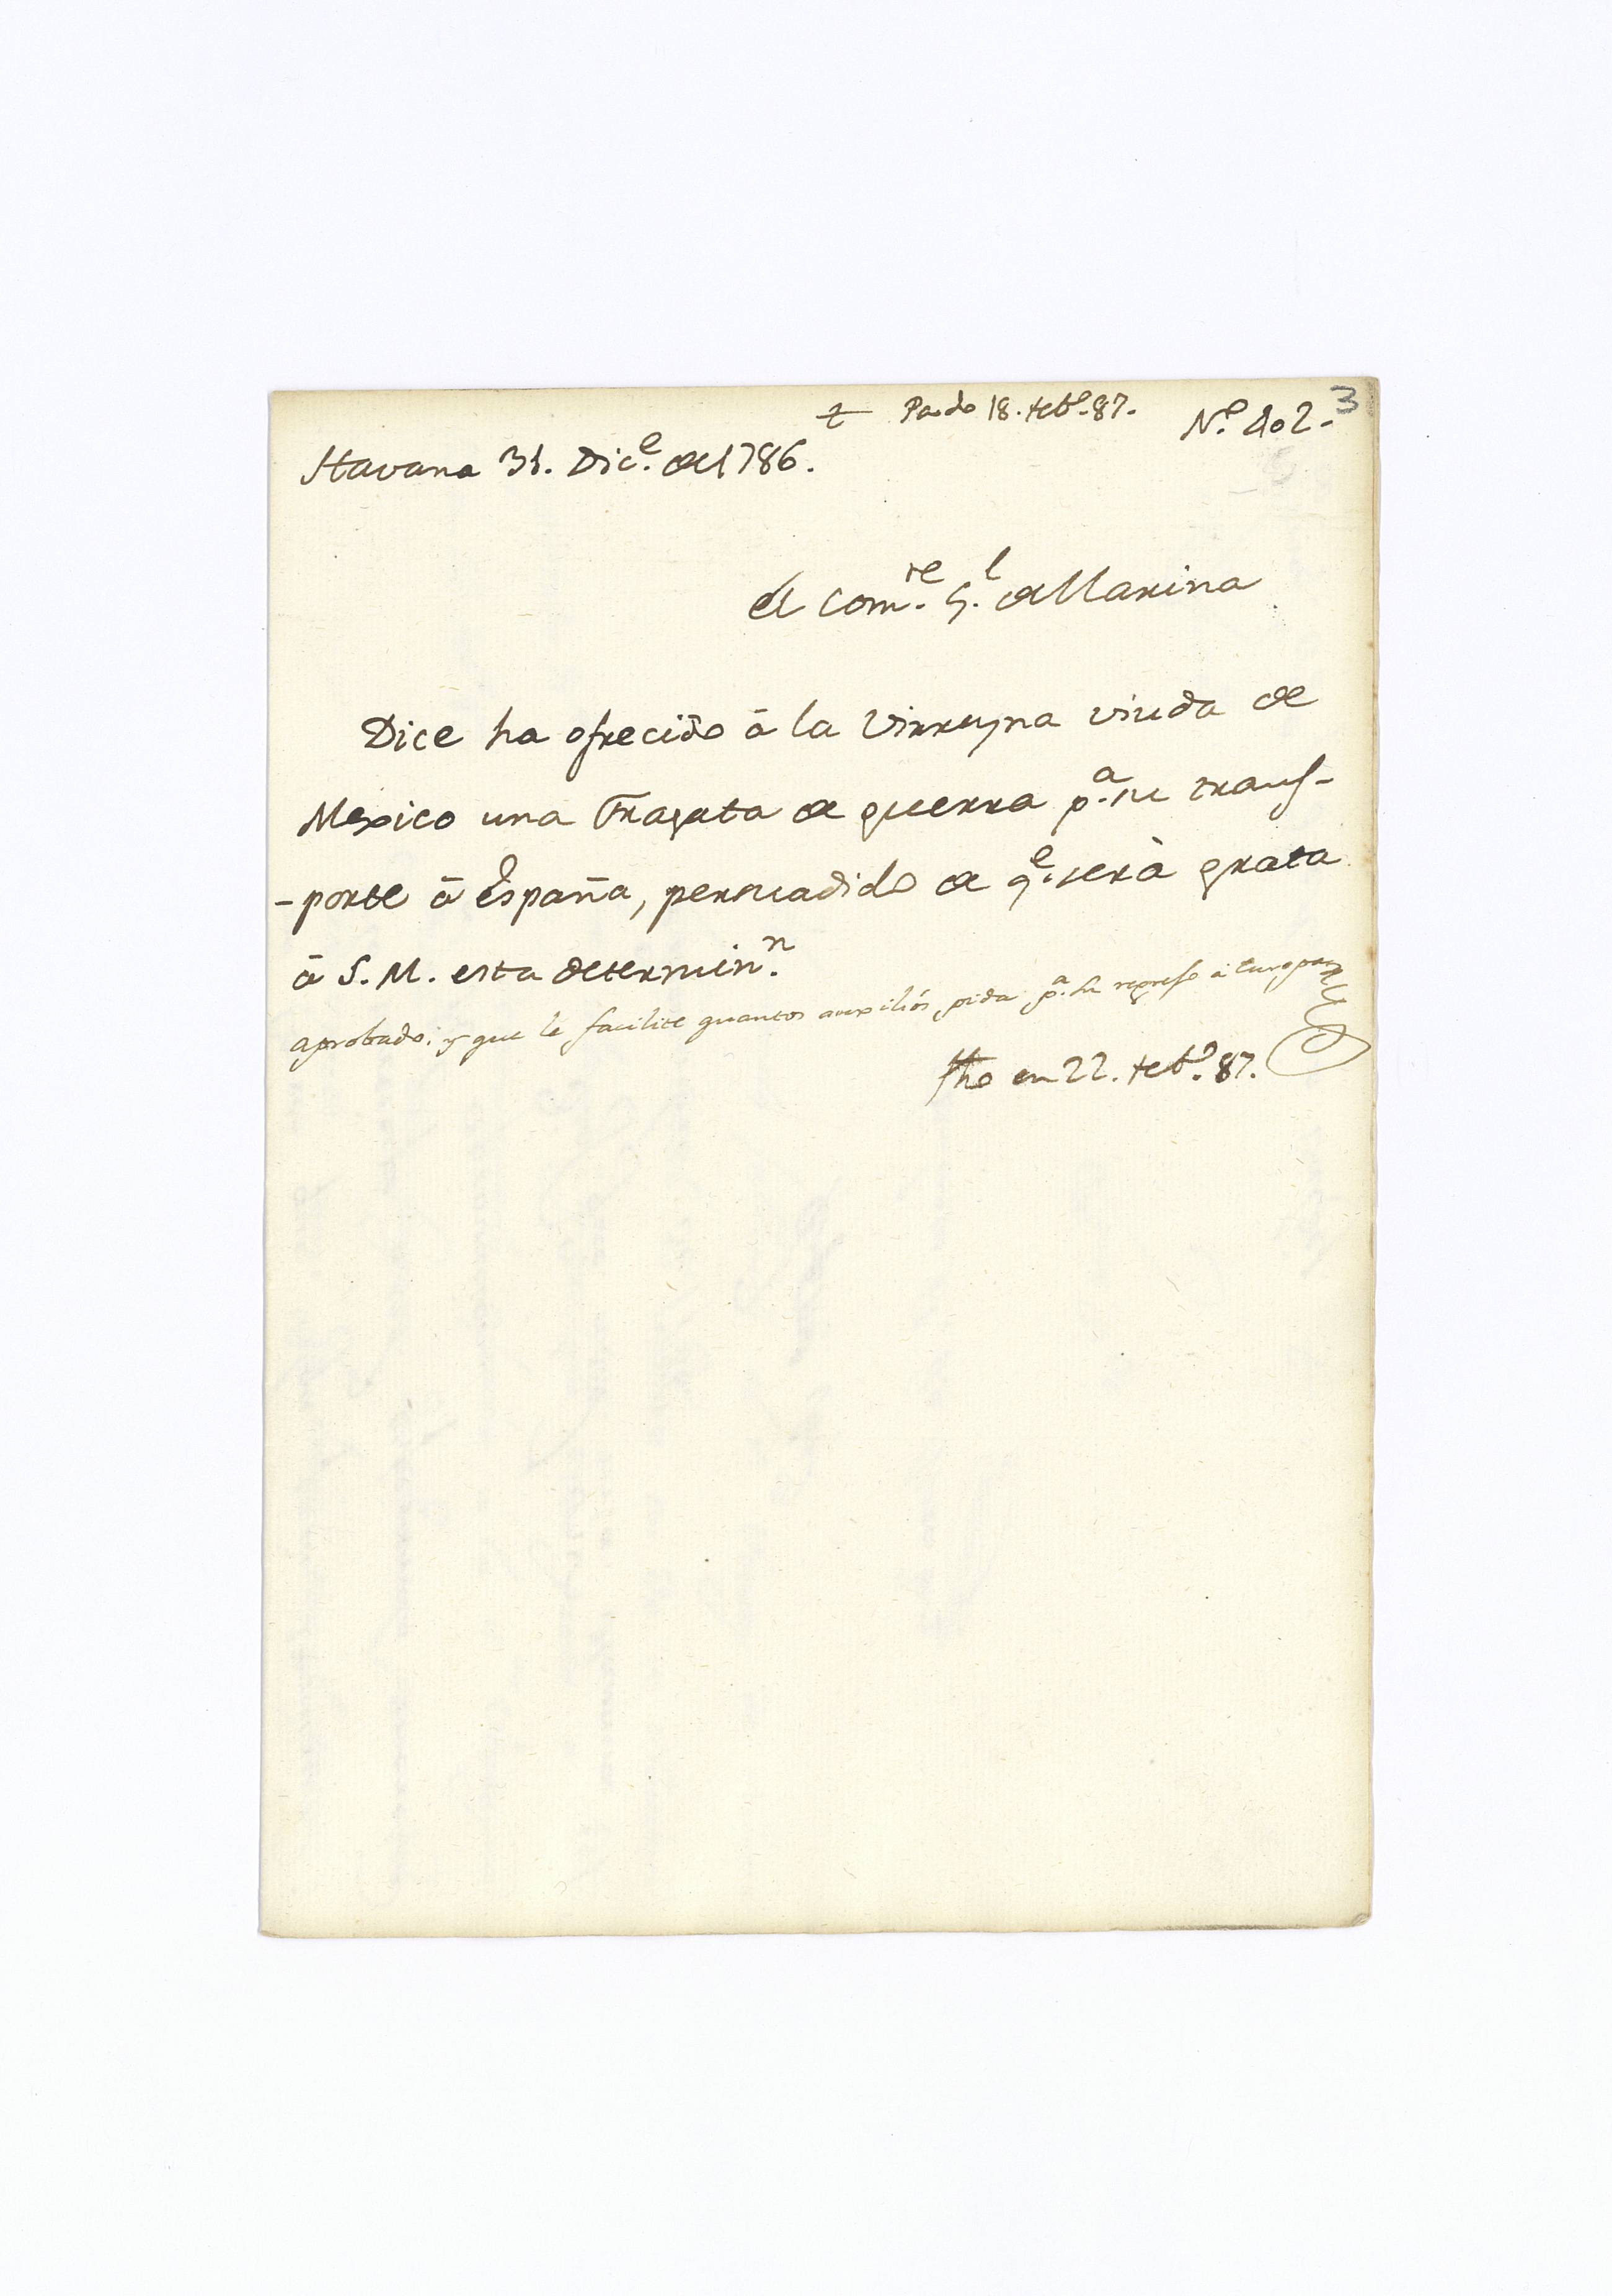 Pardo 18. feb.º 87. N.º 402. 3
Havana 31. Dic.e de 1786.
el Com.te G.l de Marina
Dice ha ofrecido à la Virreyna viuda de
Mexico una Fragata de guerra p.a su transf-
-porte à España, persuadido de q.e serà grata
à S. M. esta determin.n
aprobado; y que le facilite quantos auxiliós pida p.a su regreso à Europa
fho en 22. feb.º 87.